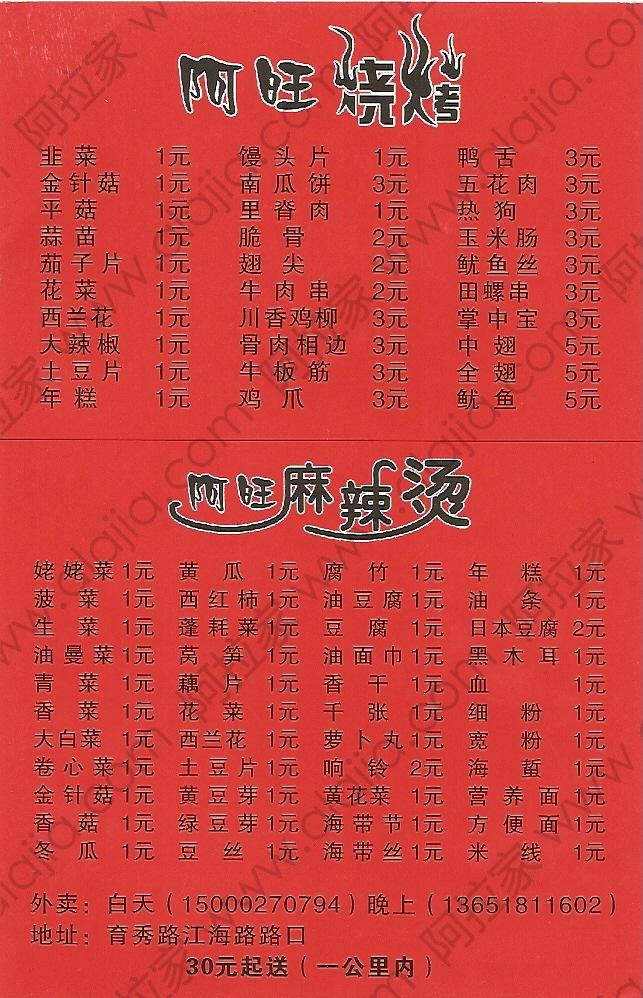 阿旺烧烤
韭菜 1元 馒头片 1元 鸭舌 3元
金针菇 1元 南瓜饼 3元 五花肉 3元
平菇 1元 里脊肉 1元 热狗 3元
蒜苗 1元 脆骨 2元 玉米肠 3元
茄子片 1元 翅尖 2元 鱿鱼丝 3元
花菜 1元 牛肉串 2元 田螺串 3元
西兰花 1元 川香鸡柳 3元 掌中宝 3元
大辣椒 1元 骨肉相边 3元 中翅 5元
土豆片 1元 牛板筋 3元 全翅 5元
年糕 1元 鸡爪 3元 鱿鱼 5元
阿旺麻辣烫
姥姥菜 1元 黄瓜 1元 腐竹 1元 年糕 1元
菠菜 1元 西红柿 1元 油豆腐 1元 油条 1元
生菜 1元 蓬耗菜 1元 豆腐 1元 日本豆腐 2元
油曼菜 1元 莴笋 1元 油面巾 1元 黑木耳 1元
青菜 1元 藕片 1元 香干 1元 血 1元
香菜 1元 花菜 1元 千张 1元 细粉 1元
大白菜 1元 西兰花 1元 萝卜丸 1元 宽粉 1元
卷心菜 1元 土豆片 1元 响铃 2元 海蜇 1元
金针菇 1元 黄豆芽 1元 黄花菜 1元 营养面 1元
香菇 1元 绿豆芽 1元 海带节 1元 方便面 1元
冬瓜 1元 豆丝 1元 海带丝 1元 米线 1元
外卖：白天（15000270794）晚上（13651811602）
地址：育秀路江海路路口
30元起送（一公里内）
阿拉家 www.alajia.com